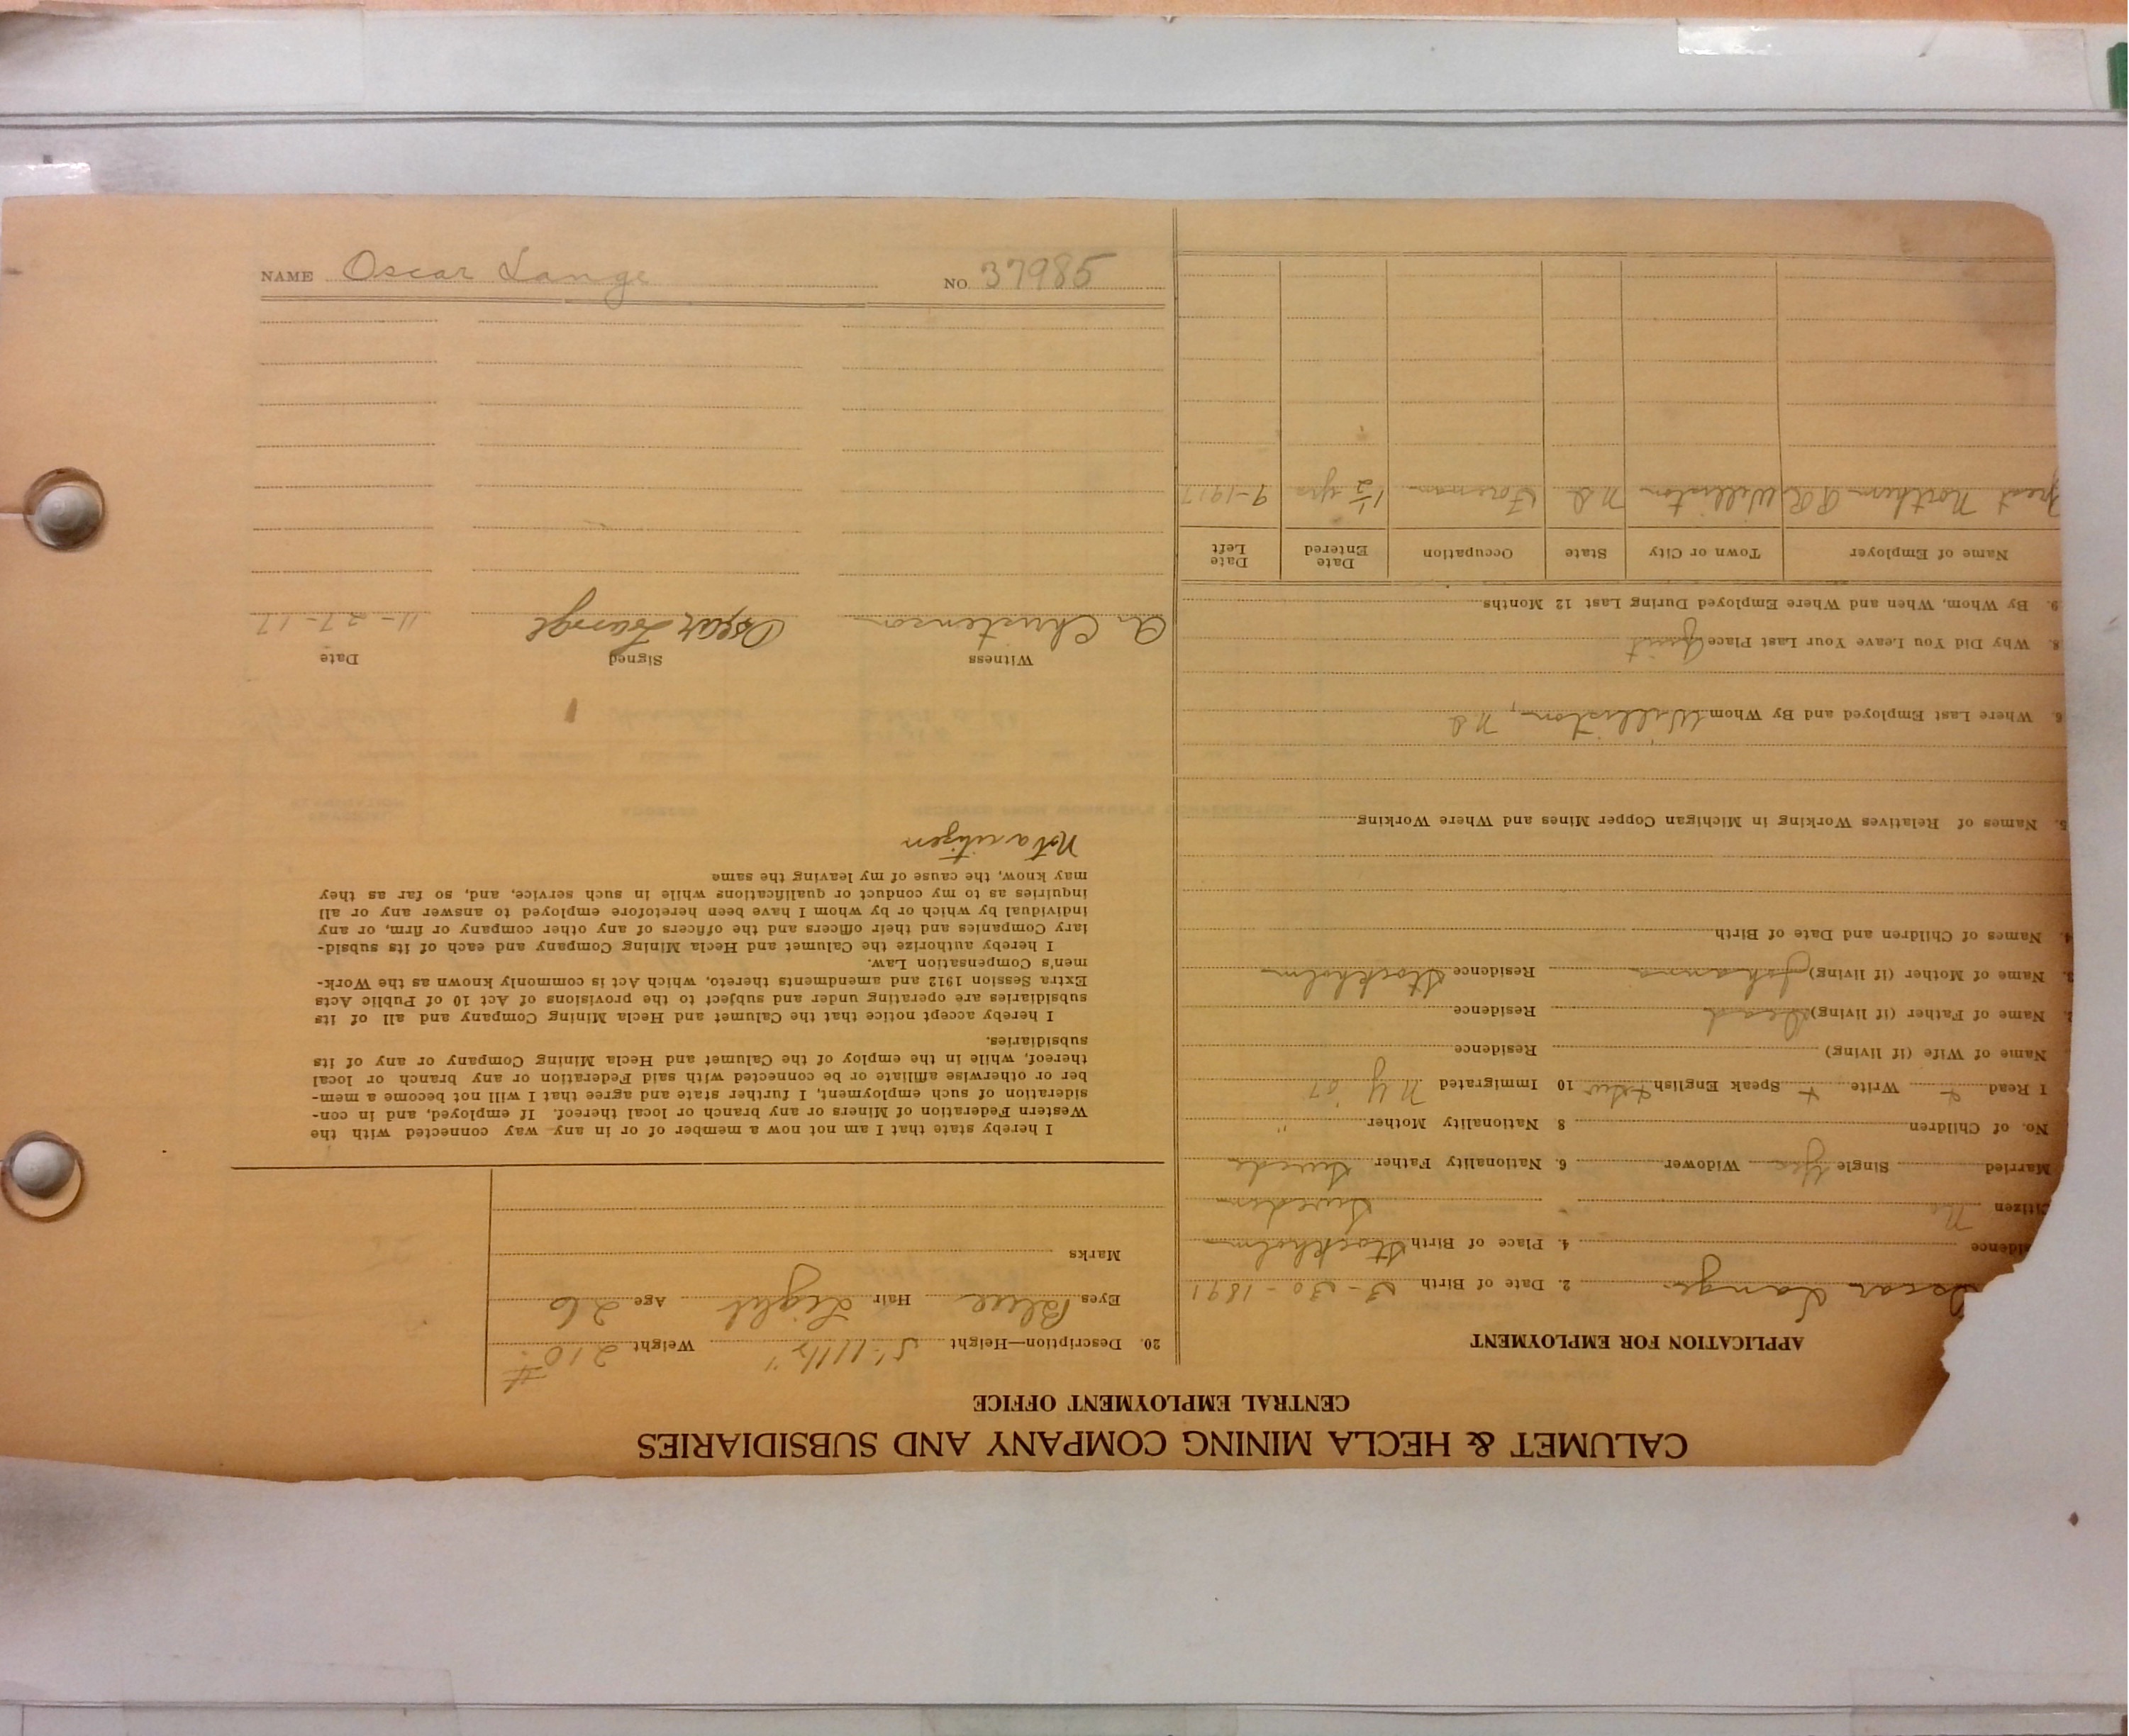 CALUMET & HECLA MINING COMPANY AND SUBSIDIARIES
CENTRAL EMPLOYMENT OFFICE
APPLICATION FOR EMPLOYMENT
Oscar Lange 2. Date of Birth 3-30-1891
idence 4. Place of Birth Stockholm
itizen No Sweden
Married Single Yes Widower 6. Nationality Father Swede
No. of Children 8 Nationality Mother "
I Read + Write + Speak English 10 Immigrated N Y 07
Name of Wife (if living) Residence
2. Name of Father (if living) Dead Residence
3. Name of Mother (if living) Johanna Residence Stockholm
4. Names of Children and Date of Birth
5. Names of Relatives Working in Michigan Copper Mines and Where Working
6. Where Last Employed and By Whom Williston, N D
8. Why Did You Leave Your Last Place Quit
9. By Whom, When and Where Employed During Last 12 Months
Name of Employer Town or City State Occupation Date Entered Date Left
Great Northern RR Williston N D Foreman 1½ yrs 9-1917
20. Description—Height 5' 11 1/2" Weight 210 #
Eyes Blue Hair Light Age 26
Marks
I hereby state that I am not now a member of or in any way connected with the
Western Federation of Miners or any branch or local thereof. If employed, and in con-
sideration of such employment, I further state and agree that I will not become a mem-
ber or otherwise affiliate or be connected with said Federation or any branch or local
thereof, while in the employ of the Calumet and Hecla Mining Company or any of its
subsidiaries.
I hereby accept notice that the Calumet and Hecla Mining Company and all of its
subsidiaries are operating under and subject to the provisions of Act 10 of Public Acts
Extra Session 1912 and amendments thereto, which Act is commonly known as the Work-
men's Compensation Law.
I hereby authorize the Calumet and Hecla Mining Company and each of its subsid-
iary Companies and their officers and the officers of any other company or firm, or any
individual by which or by whom I have been heretofore employed to answer any or all
inquiries as to my conduct or qualifications while in such service, and, so far as they
may know, the cause of my leaving the same
Not a citizen
Witness Signed Date
A. Christenson Oscar Lange 11-27-17
NAME Oscar Lange NO. 37985